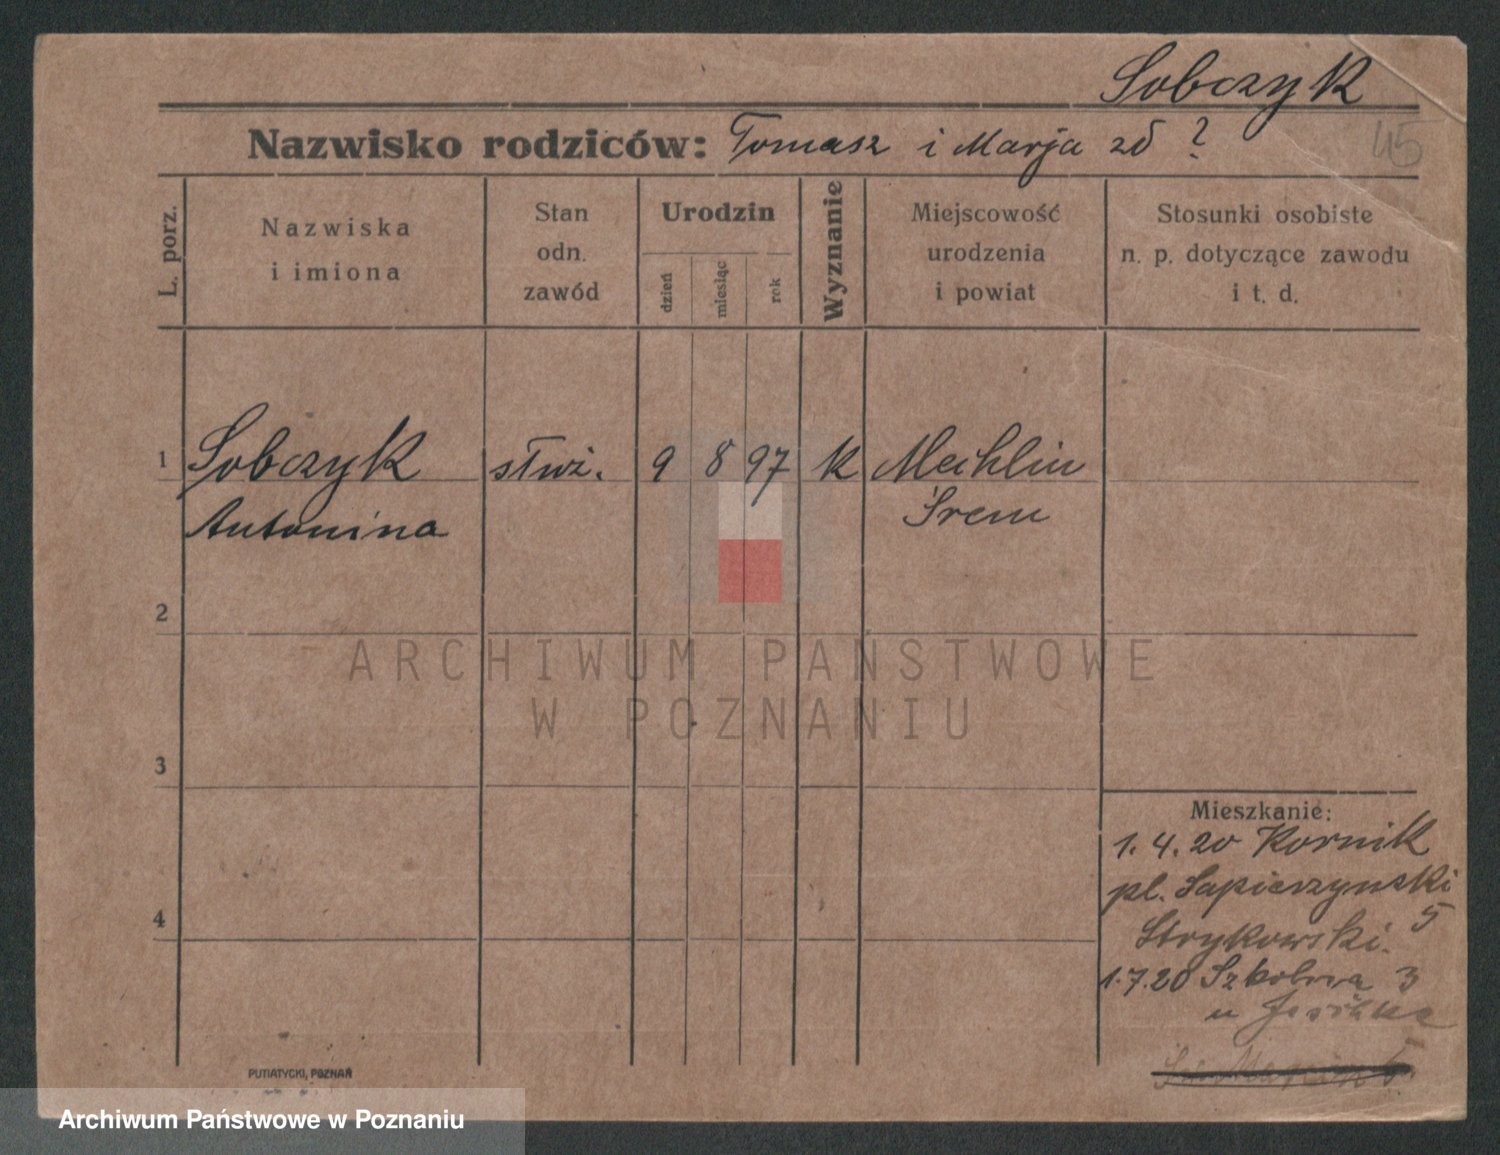 Sobczyk
Nazwisko rodziców: Tomasz i Marja zd ?
45
L. porz.
Nazwiska
i imiona
Stan
odn.
zawód
Urodzin
dzień
miesiąc
rok
Wyznanie
Miejscowość
urodzenia
i powiat
Stosunki osobiste
n. p. dotyczące zawodu
i t. d.
1 Sobczyk służ. 9 8 97 k Mechlin
Antonina Śrem
2
ARCHIWUM PAŃSTWOWE
W POZNANIU
3
Mieszkanie:
1.4.20 Kornik
pl. Sapieszynski
5
Strykowski.
4
1.7.20 Szkolna 3
u
PUTIATYCKI, POZNAŃ
Archiwum Państwowe w Poznaniu